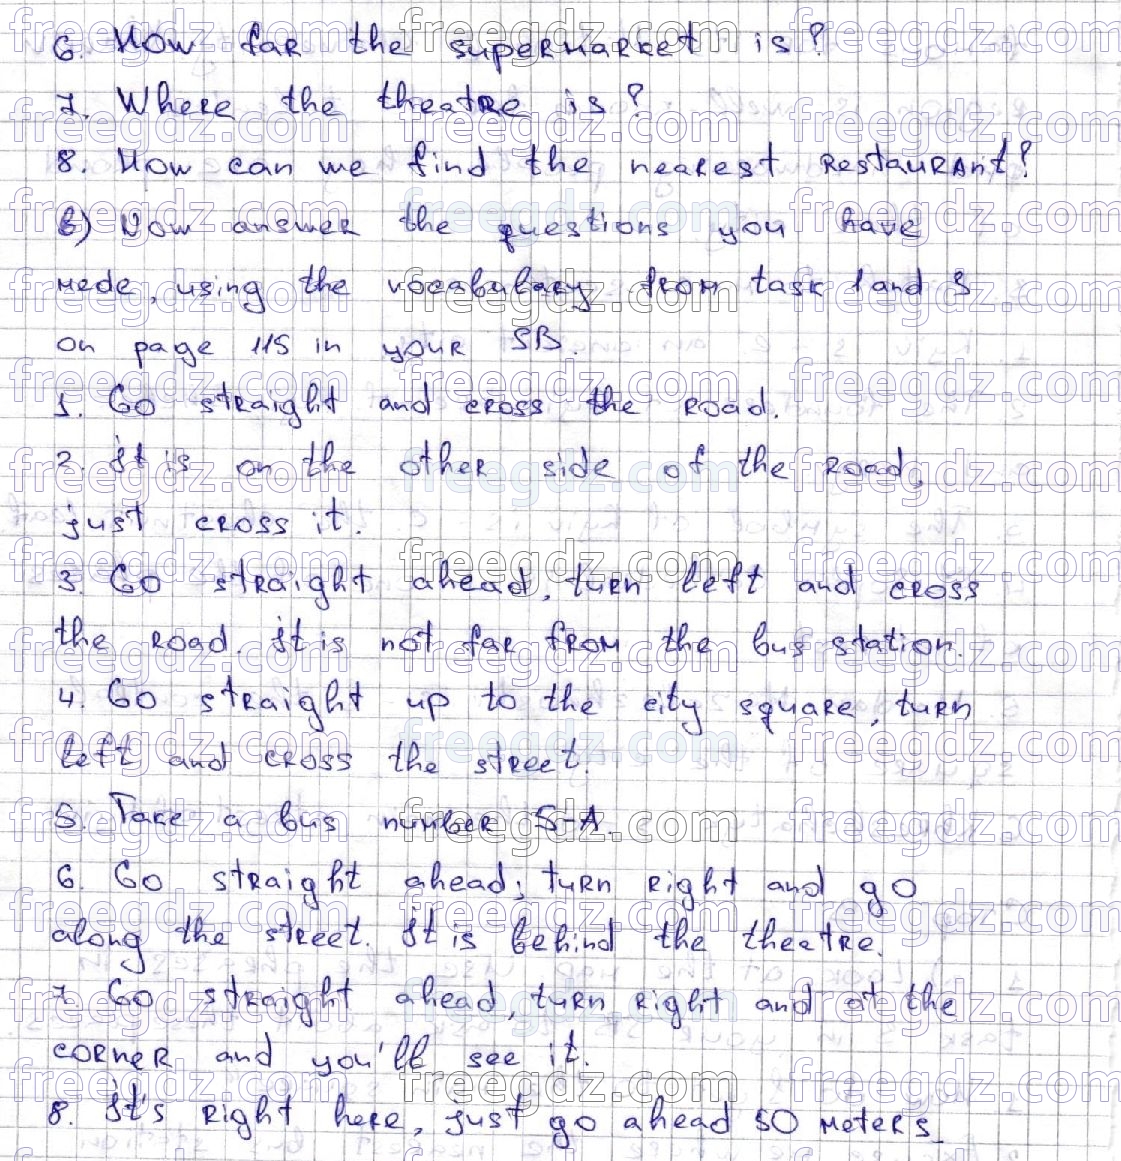 6. How far the supermarket is?
7. Where the theatre is?
8. How can we find the nearest restaurant?
b) Now answer the questions you have
mede, using the vocabulary from task 1 and 5
on page 115 in your SB.
1. Go straight and cross the road.
2. It is on the other side of the road,
just cross it.
3. Go straight ahead, turn left and cross
the road. It is not far from the bus station.
4. Go straight up to the city square, turn
left and cross the street.
5. Take a bus number 5-A.
6. Go straight ahead; turn right and go
along the street. It is behind the theatre.
7. Go straight ahead, turn right and at the
corner and you'll see it.
8. It's right here, just go ahead 50 meters.
freegdz.com